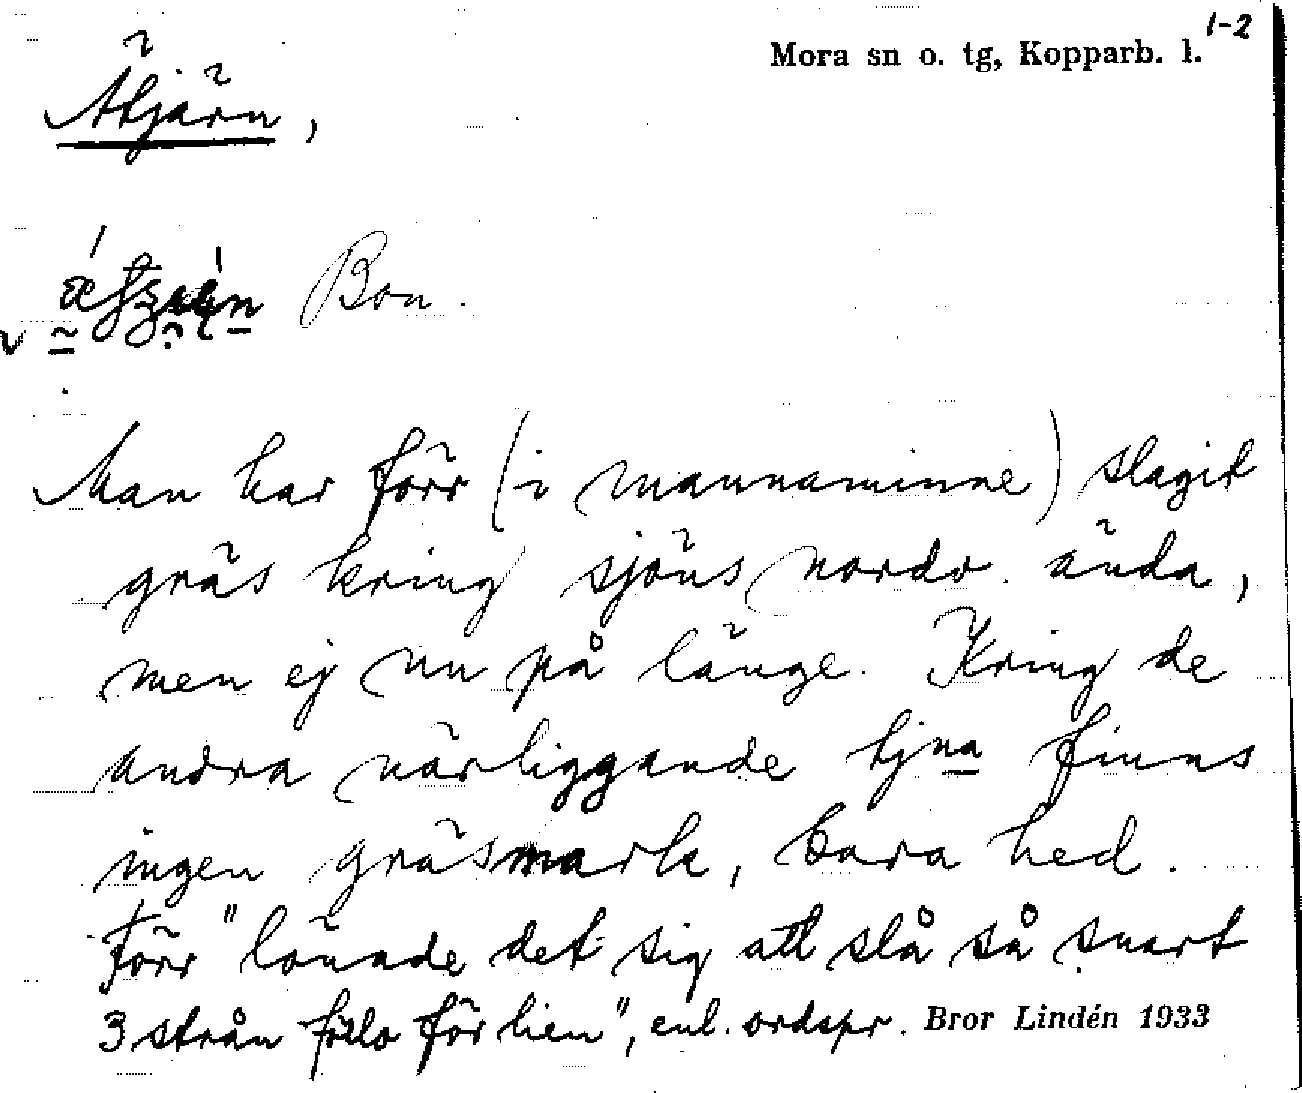 Mora sn o. tg, Kopparb. l. 1-2
Ätjärn,
Bon.
Man har förr (i mannaminne) slagit
gräs kring sjöns nordv. ända,
men ej nu på länge. Kring de
andra närliggande tjna finns
ingen gräsmark, bara hed.
Förr "lönade det sig att slå så snart
3 strån föllo för lien", enl. ordspr. Bror Lindén 1933